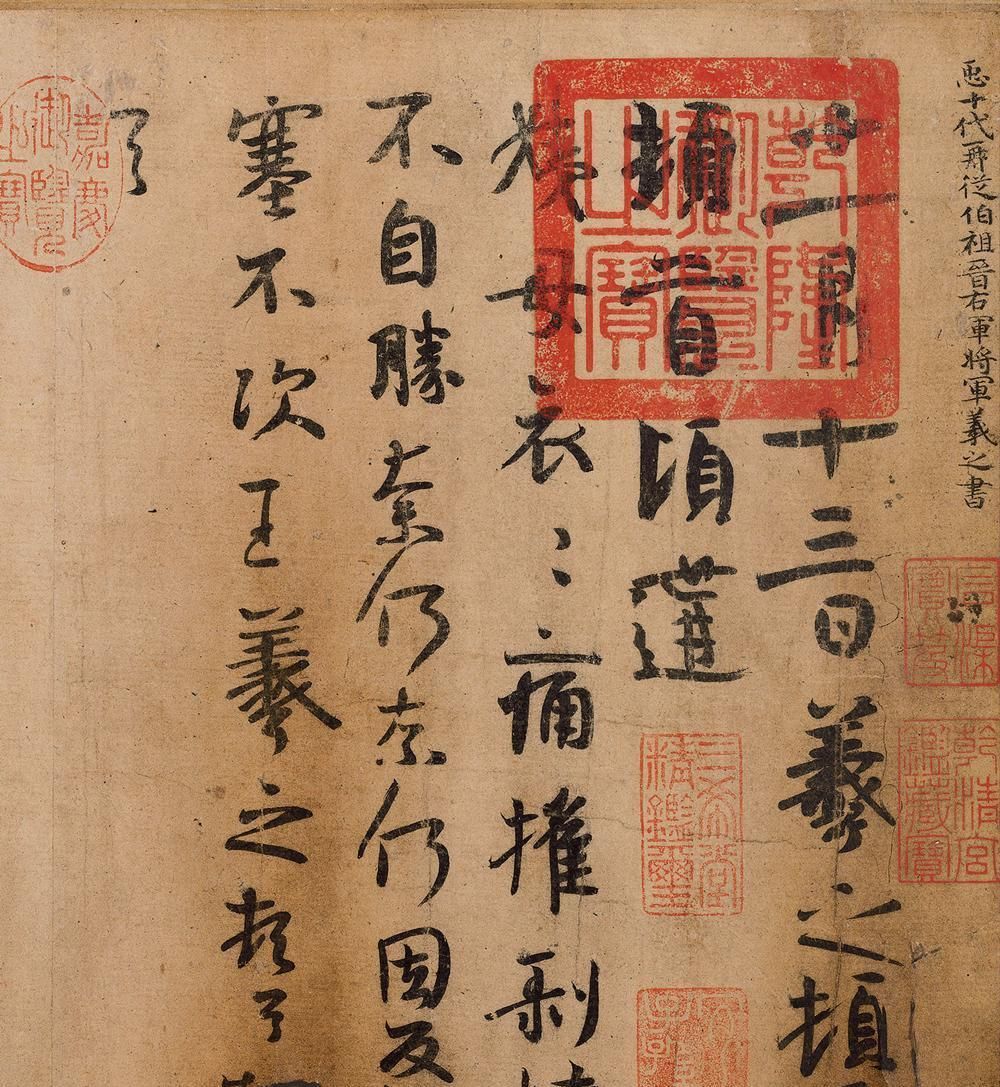 𢘑十代再從伯祖晉右軍將軍羲之書
石渠寶笈
乾清宮鑑藏寶
十一月十三日羲之頓
乾隆御覽之寶
頓首頃遘
三希堂精鑑璽
姨母哀〻痛摧剝
不自勝奈何奈何因反
塞不次王羲之頓首
首
嘉慶御覽之寶